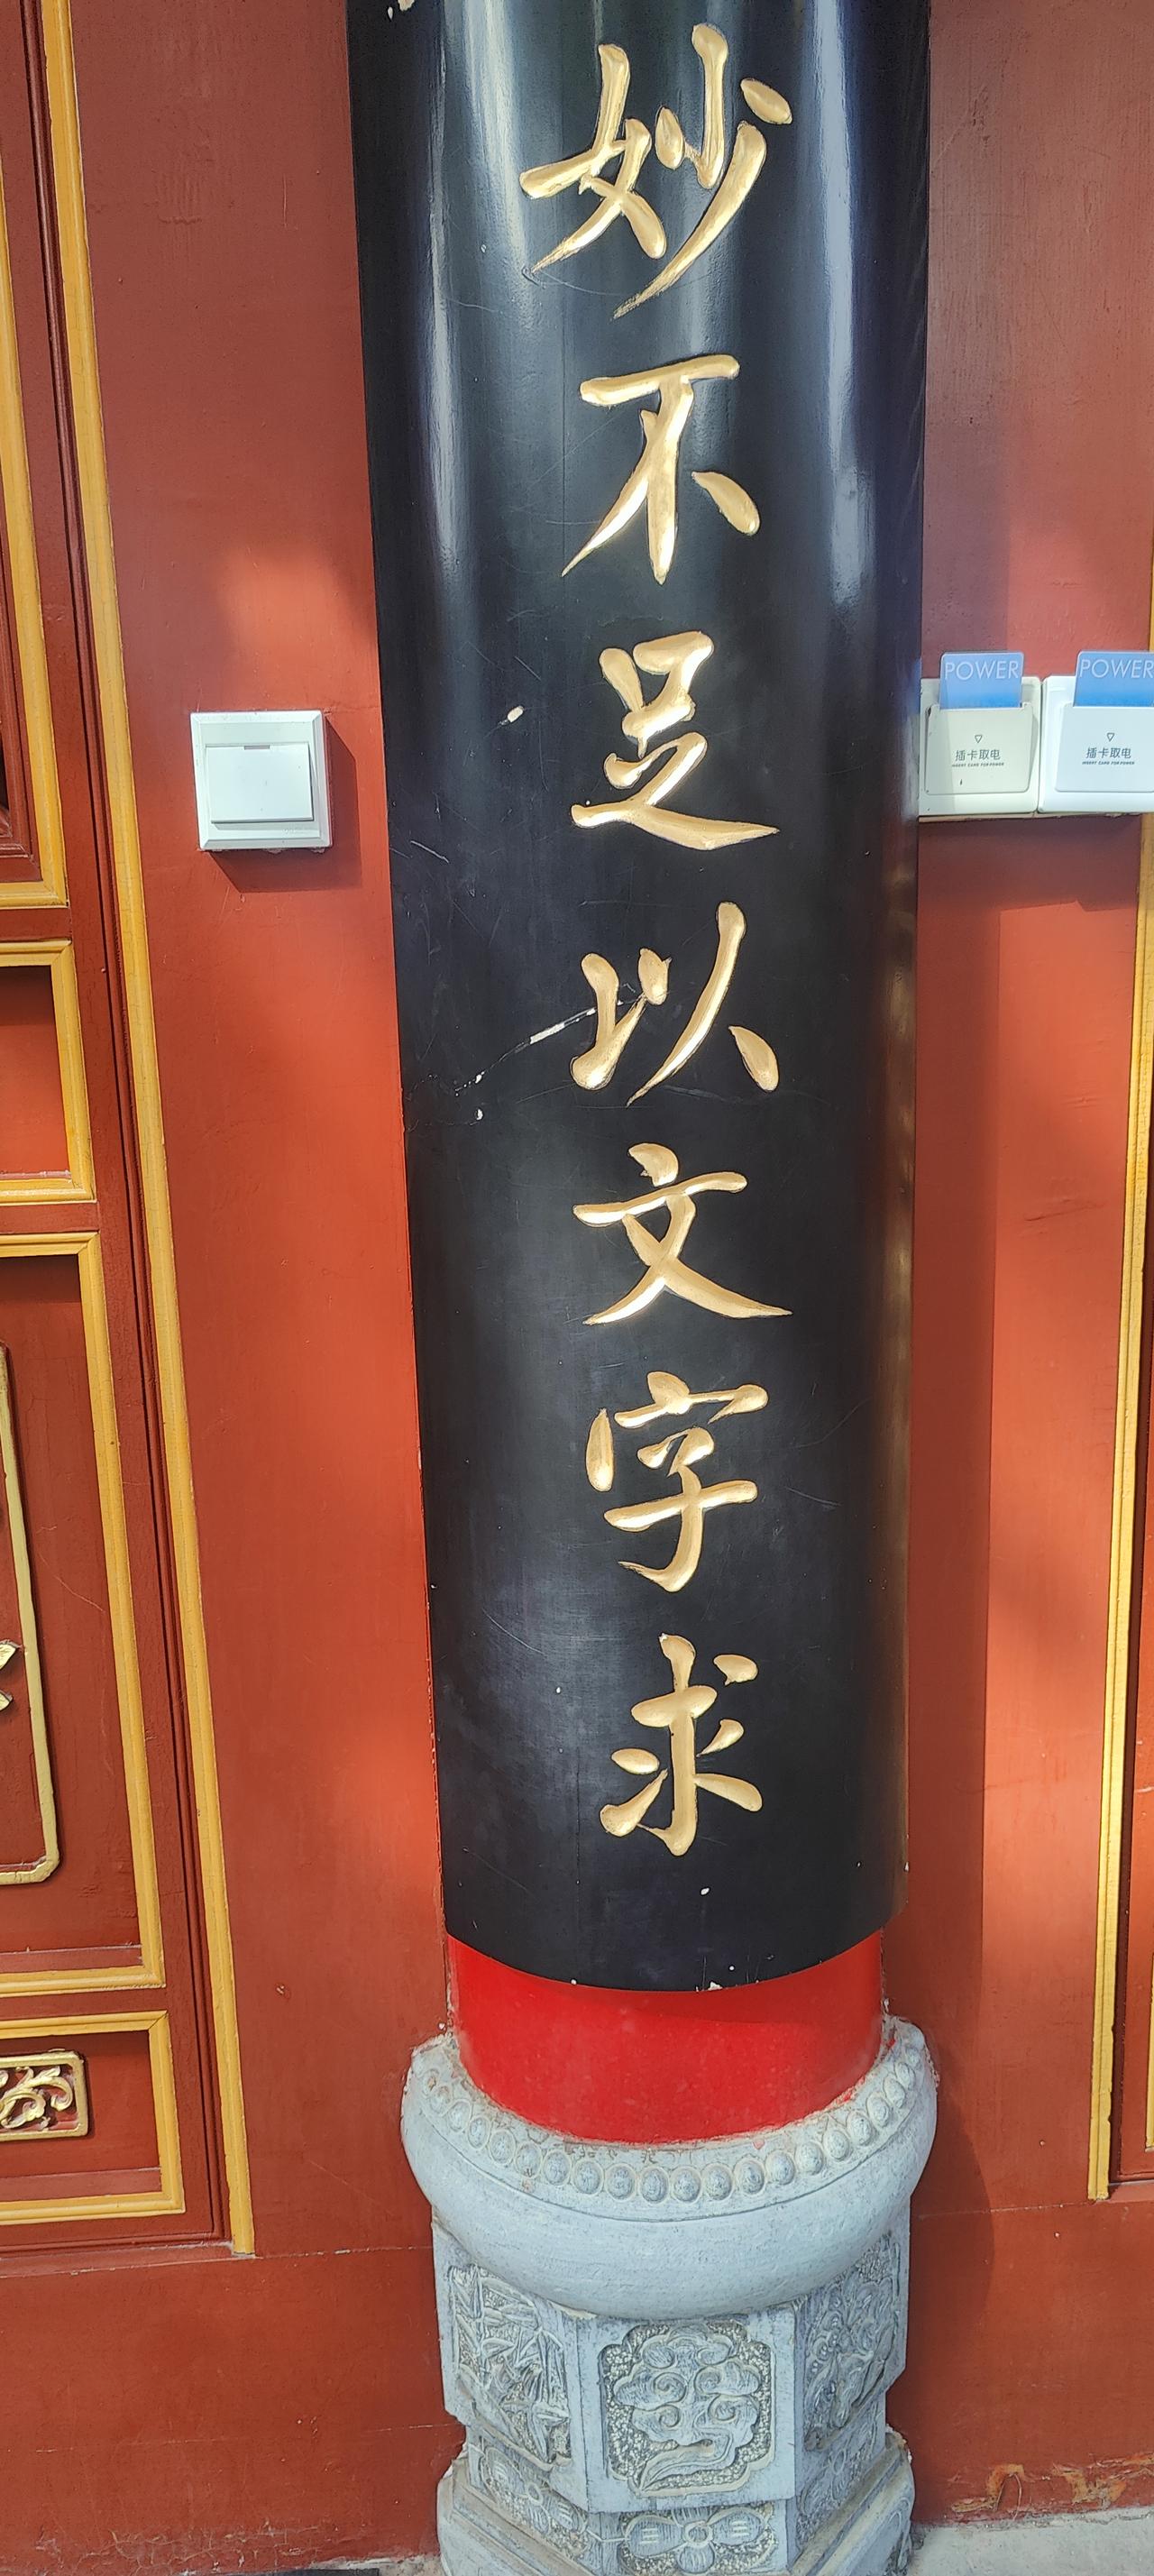 妙不足以文字求
POWER
插卡取电
INSERT CARD FOR POWER
POWER
插卡取电
INSERT CARD FOR POWER